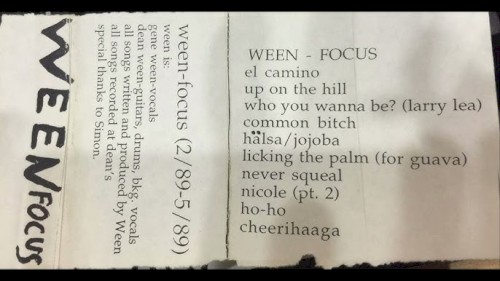 WEEN FOCUS
ween-focus (2/89-5/89)
ween is:
gene ween-vocals
dean ween-guitars, drums, bkg. vocals
all songs written and produced by Ween
all songs recorded at dean's
special thanks to Simon.
WEEN - FOCUS
el camino
up on the hill
who you wanna be? (larry lea)
common bitch
hälsa/jojoba
licking the palm (for guava)
never squeal
nicole (pt. 2)
ho-ho
cheerihaaga